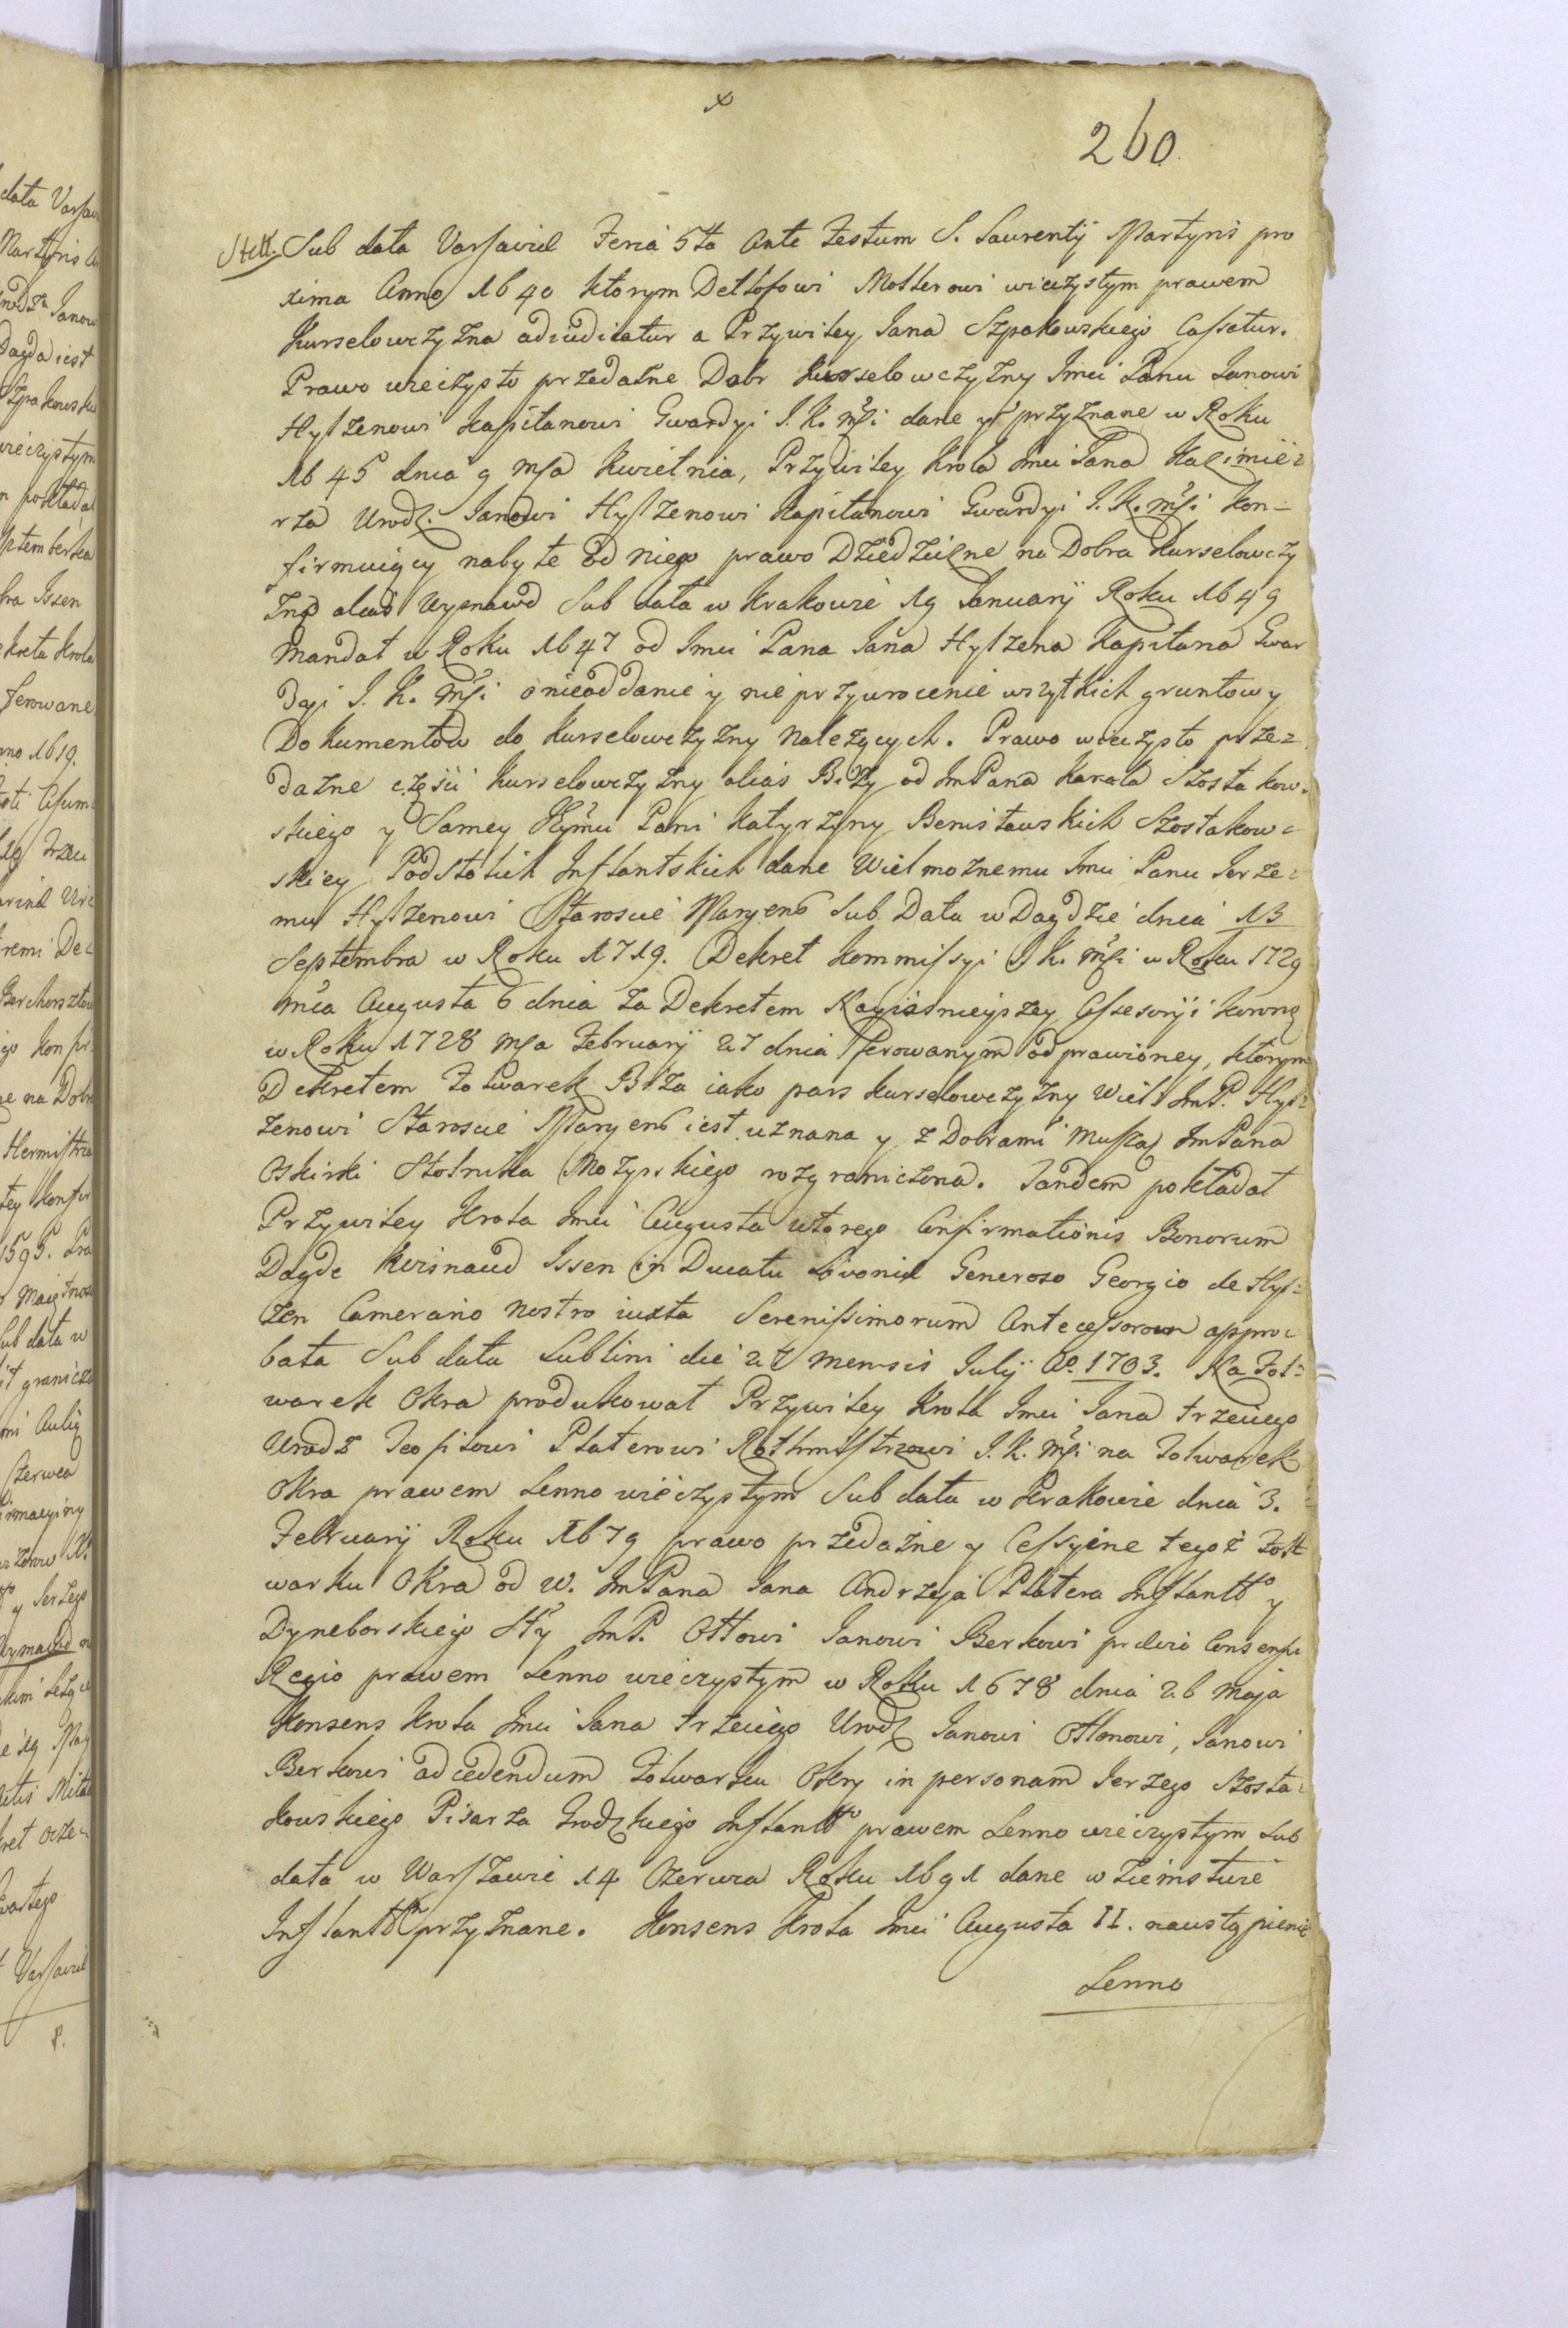 x
260.
Sub data Varsaviæ Feria 5ta Ante Festum S. Laurentij Martyris pro
xima Anno 1640 ktorym Detlofowi Mollerowi wieczystym prawem
Kurselowczyzna adiudicatur a Przywiley Jana Szpakowskiego Cassatur.
Prawo wieczysto przedażne Dobr Kurselowczyzny Jmci Panu Janowi
Hylzenowi Kapitanowi Gwardyi J. K. Mści dane y przyznane w Roku
1645 dnia 9 Msa Kwietnia, Przywiley Krola Jmci Jana Kazimie=
rza Urodz. Janowi Hylzenowi Kapitanowi Gwardyi J. K. Mści kon=
firmuiący nabyte od niego prawo Dziedziczne na Dobra Kurselowczy
znę alias Uzynawd Sub data w Krakowie 19 Januarij Roku 1649
Mandat w Roku 1647 od Jmci Pana Jana Hylzena Kapitana Gwar
dyi J. K. Mści o nieoddanie y nie przywrocenie wszytkich gruntow y
Dokumentow do Kurselowczyzny należących. Prawo wieczysto prze=
dażne części Kurselowczyzny alias Biży od JmPana Karola Szostakow=
skiego y Samey Jeymci Pani Katyrzyny Benisławskich Szostakow=
skiey Podstolich Inflantskich dane Wielmożnemu Jmci Panu Jerze=
mu Hylzenowi Staroscie Maryenb Sub Data w Dagdzie dnia 13
Septembra w Roku 1719. Dekret Kommissyi J. K. Mści w Roku 1729
mca Augusta 6 dnia za Dekretem Nayiasnieyszey Assessoryi Koronę
w Roku 1728 Msa Februarij 27 dnia ferowanym odprawioney, ktorym
Dekretem Folwarek Biża iako pars Kurselowczyzny Wiel. JmP. Hyl=
zenowi Staroscie Maryenb iest uznana y z Dobrami Muszą JmPana
Oskirki Stolnika Mozyrskiego rozgraniczona. Tandem pokładał
Przywiley Krola Jmci Augusta wtorego Confirmationis Bonorum
Dagde Kurinaud Issen in Ducatu Livoniæ Generoso Georgio de Hyl=
zen Camerario Nostro iuxta Serenissimorum Antecessorum appro=
bata Sub data Lublini die 27 Mensis Julij Ao. 1703. Na Fol=
warek Okra produkował Przywiley Krola Jmci Jana trzeciego
Urodz Teofilowi Platerowi Rothmistrzowi J. K. Mści na Folwarek
Okra prawem Lenno wieczystym Sub data w Krakowie dnia 3.
Februarij Roku 1679 prawo przedażne y Cessyine tegoż Foll
warku Okra od W. JmPana Jana Andrzeja Platera Inflantto y
Dyneborskiego Sty JmP. Ottowi Janowi Berkowi prævio Consensu
Regio prawem Lenno wieczystym w Roku 1678 dnia 26 Maja
Konsens Krola Jmci Jana trzeciego Urodz Janowi Ottonowi, Janowi
Berkowi ad cedendum Folwarku Okry in personam Jerzego Szosta=
kowskiego Pisarza Grodzkiego Inflantto prawem Lenno wieczystym Sub
data w Warszawie 14 Czerwca Roku 1691 dane w Ziemstwie
Inflantt przyznane. Konsens Krola Jmci Augusta II. na ustąpienie
Lenno